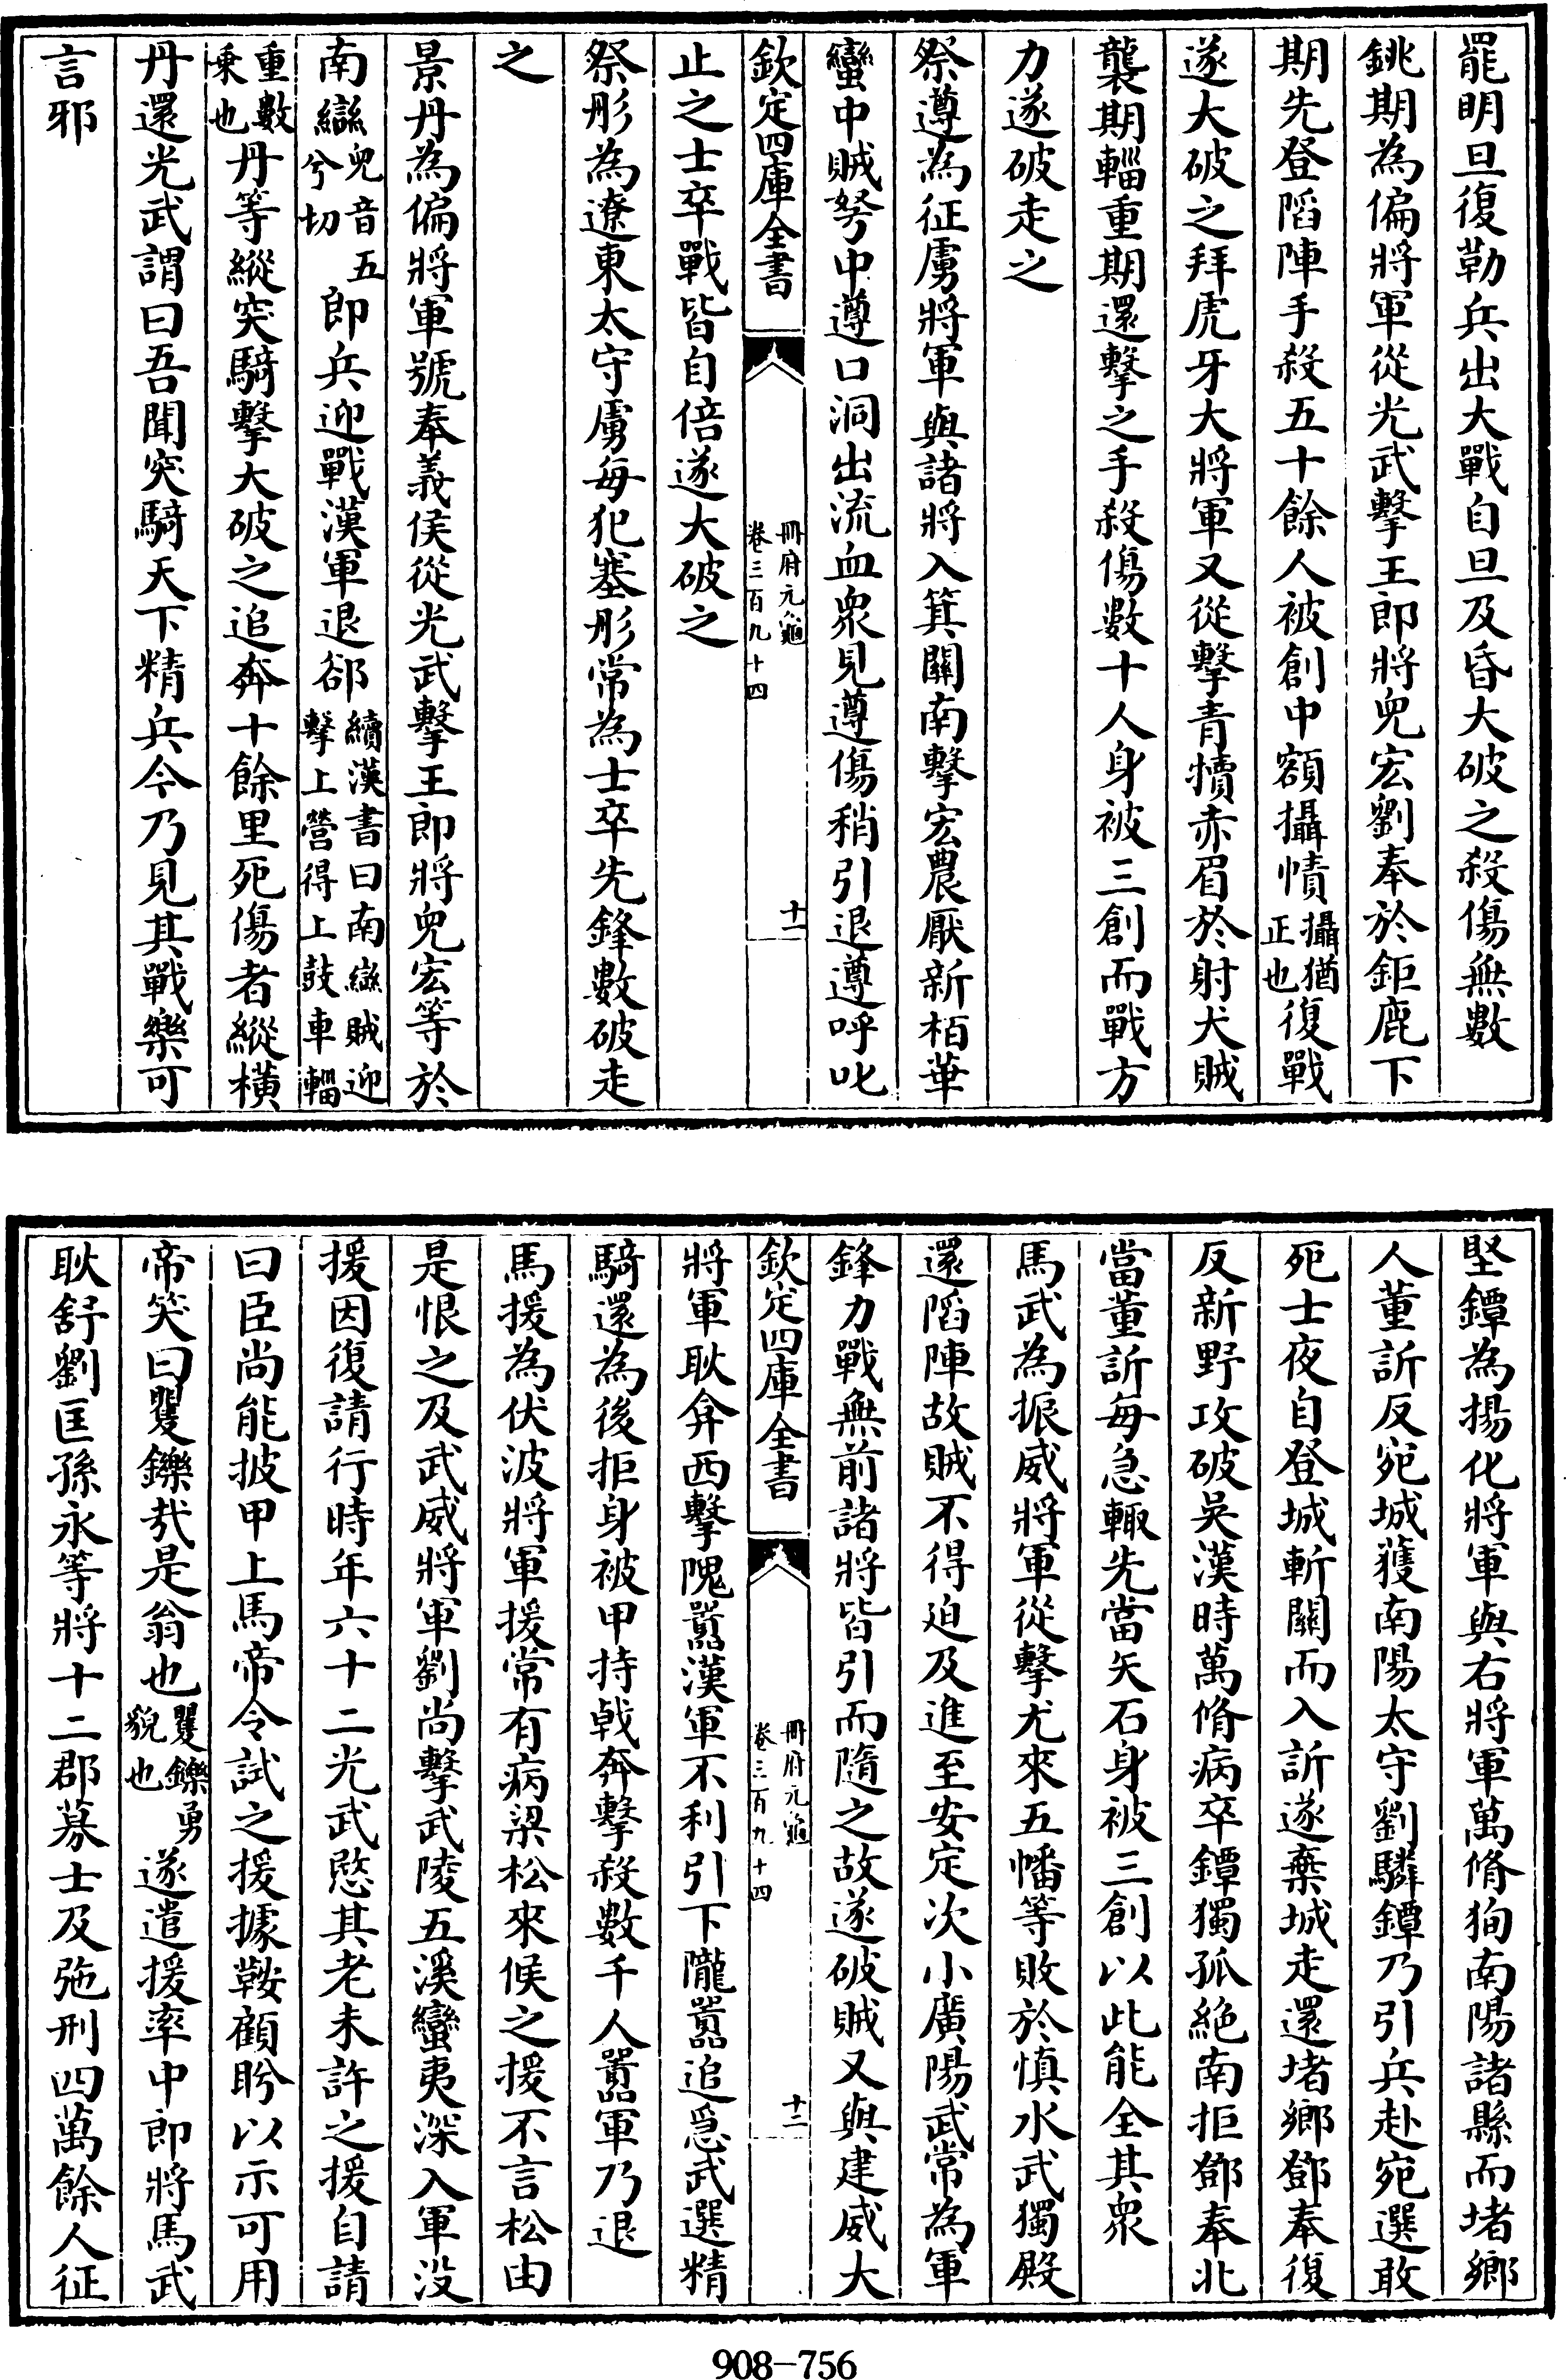 罷明旦復勒兵出大戰自旦及昏大破之殺傷無數
銚期為偏將軍從光武擊王郎將兒宏劉奉於鉅鹿下
期先登䧟陣手殺五十餘人被創中額攝幘攝猶正也復戰
遂大破之拜虎牙大將軍又從擊青犢赤眉於射犬賊
襲期輜重期還擊之手殺傷數十人身被三創而戰方
力遂破走之
祭遵為征虜將軍與諸將入箕關南擊宏農厭新栢華
蠻中賊弩中遵口洞出流血衆見遵傷稍引退遵呼叱
欽定四庫全書
冊府元龜
卷三百九十四
十一
止之士卒戰皆自倍遂大破之
祭肜為遼東太守虜每犯塞肜常為士卒先鋒數破走
之
景丹為偏將軍號奉義侯從光武擊王郎將兒宏等於
南䜌兒音五兮切郎兵迎戰漢軍退郤續漢書曰南䜌賊迎擊上營得上鼓車輜
重數乗也丹等縱突騎擊大破之追奔十餘里死傷者縱橫
丹還光武謂曰吾聞突騎天下精兵今乃見其戰樂可
言邪
堅鐔為揚化將軍與右將軍萬脩狥南陽諸縣而堵鄉
人董訢反宛城獲南陽太守劉驎鐔乃引兵赴宛選敢
死士夜自登城斬關而入訢遂棄城走還堵鄉鄧奉復
反新野攻破吳漢時萬脩病卒鐔獨孤絶南拒鄧奉北
當董訢每急輙先當矢石身被三創以此能全其衆
馬武為振威將軍從擊尤來五幡等敗於慎水武獨殿
還䧟陣故賊不得迫及進至安定次小廣陽武常為軍
鋒力戰無前諸將皆引而隨之故遂破賊又與建威大
欽定四庫全書
冊府元龜
卷三百九十四
十二
將軍耿弇西擊隗囂漢軍不利引下隴囂追急武選精
騎還為後拒身被甲持戟奔擊殺數千人囂軍乃退
馬援為伏波將軍援常有病梁松來候之援不言松由
是恨之及武威將軍劉尚擊武陵五溪蠻夷深入軍沒
援因復請行時年六十二光武愍其老未許之援自請
曰臣尚能披甲上馬帝令試之援據鞍顧眄以示可用
帝笑曰矍鑠哉是翁也矍鑠勇貌也遂遣援率中郎將馬武
耿舒劉匡孫永等將十二郡募士及弛刑四萬餘人征
908-756